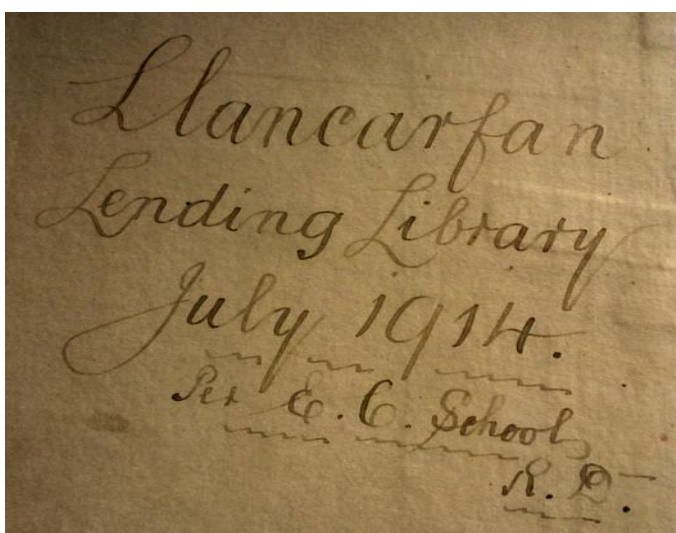 Llancarfan
Lending Library
July 1914.
Per E. C. School,
R. D.